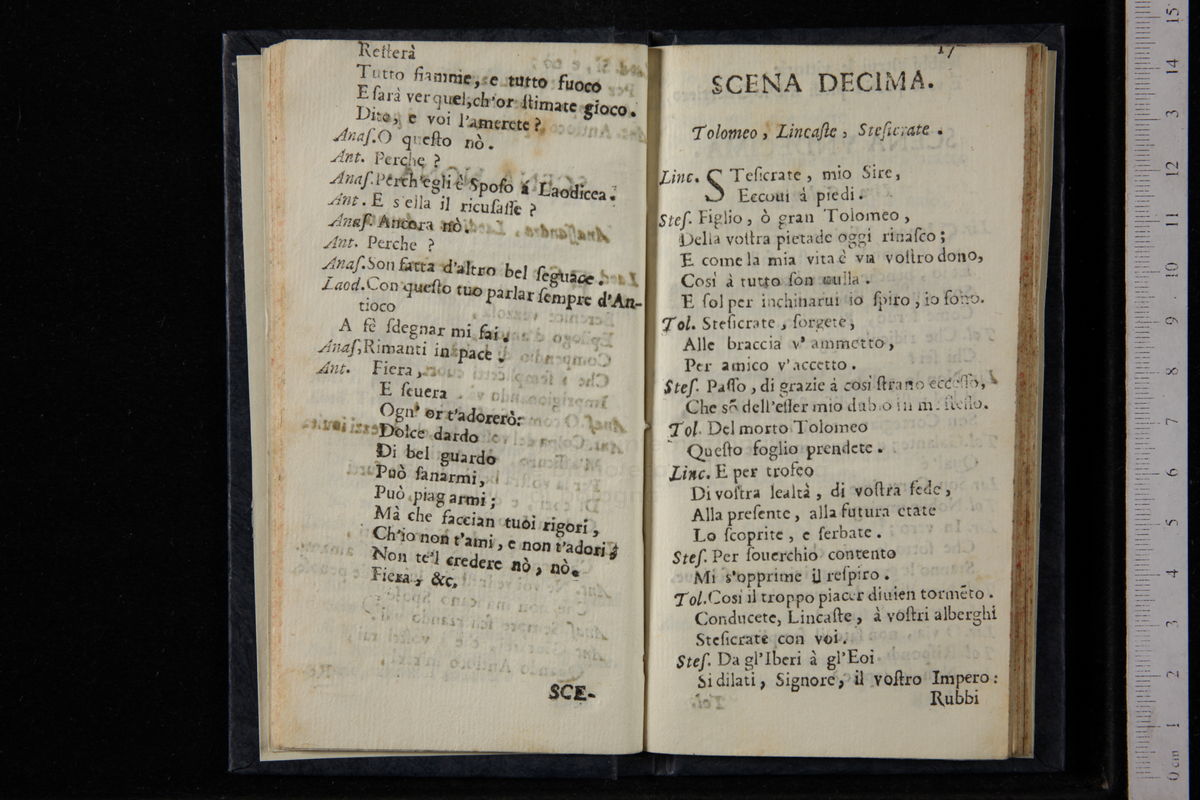 Resterà
Tutto fiamme, e tutto fuoco
E sarà ver quel, ch'or stimate gioco.
Dite, e voi l'amerete?
Anas. O questo nò.
Ant. Perche?
Anas. Perch'egli è Sposo à Laodicea.
Ant. E s'ella il ricusasse?
Anas. Ancora nò.
Ant. Perche?
Anas. Son fatta d'altro bel seguace.
Laod. Con questo tuo parlar sempre d'An-
tioco
A fè sdegnar mi fai.
Anas, Rimanti in pace.
Ant. Fiera,
E seuera
Ogn' or t'adorerò:
Dolce dardo
Di bel guardo
Può sanarmi,
Può piagarmi;
Mà che faccian tuoi rigori,
Ch'io non t'ami, e non t'adori;
Non te'l credere nò, nò.
Fiera, &c.
SCE-
17
SCENA DECIMA.
Tolomeo, Lincaste, Stesicrate.
Linc. STesicrate, mio Sire,
Eccoui à piedi.
Stes. Figlio, ò gran Tolomeo,
Della vostra pietade oggi rinasco;
E come la mia vita è vn vostro dono,
Così à tutto son nulla.
E sol per inchinarui io spiro, io sono.
Tol. Stesicrate, sorgete,
Alle braccia v'ammetto,
Per amico v'accetto.
Stes. Passo, di grazie à così strano eccesso,
Che sō dell'esser mio dubio in me stesso.
Tol. Del morto Tolomeo
Questo foglio prendete.
Linc. E per trofeo
Di vostra lealtà, di vostra fede,
Alla presente, alla futura etate
Lo scoprite, e serbate.
Stes. Per souerchio contento
Mi s'opprime il respiro.
Tol. Così il troppo piacer diuien tormēto.
Conducete, Lincaste, à vostri alberghi
Stesicrate con voi.
Stes. Da gl'Iberi à gl'Eoi
Si dilati, Signore, il vostro Impero:
Rubbi